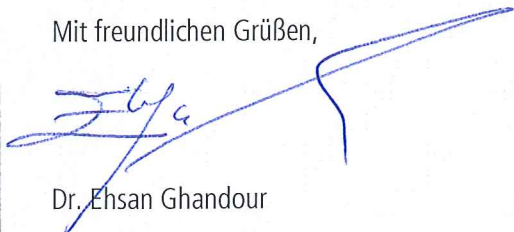 Mit freundlichen Grüßen,
Dr. Ehsan Ghandour